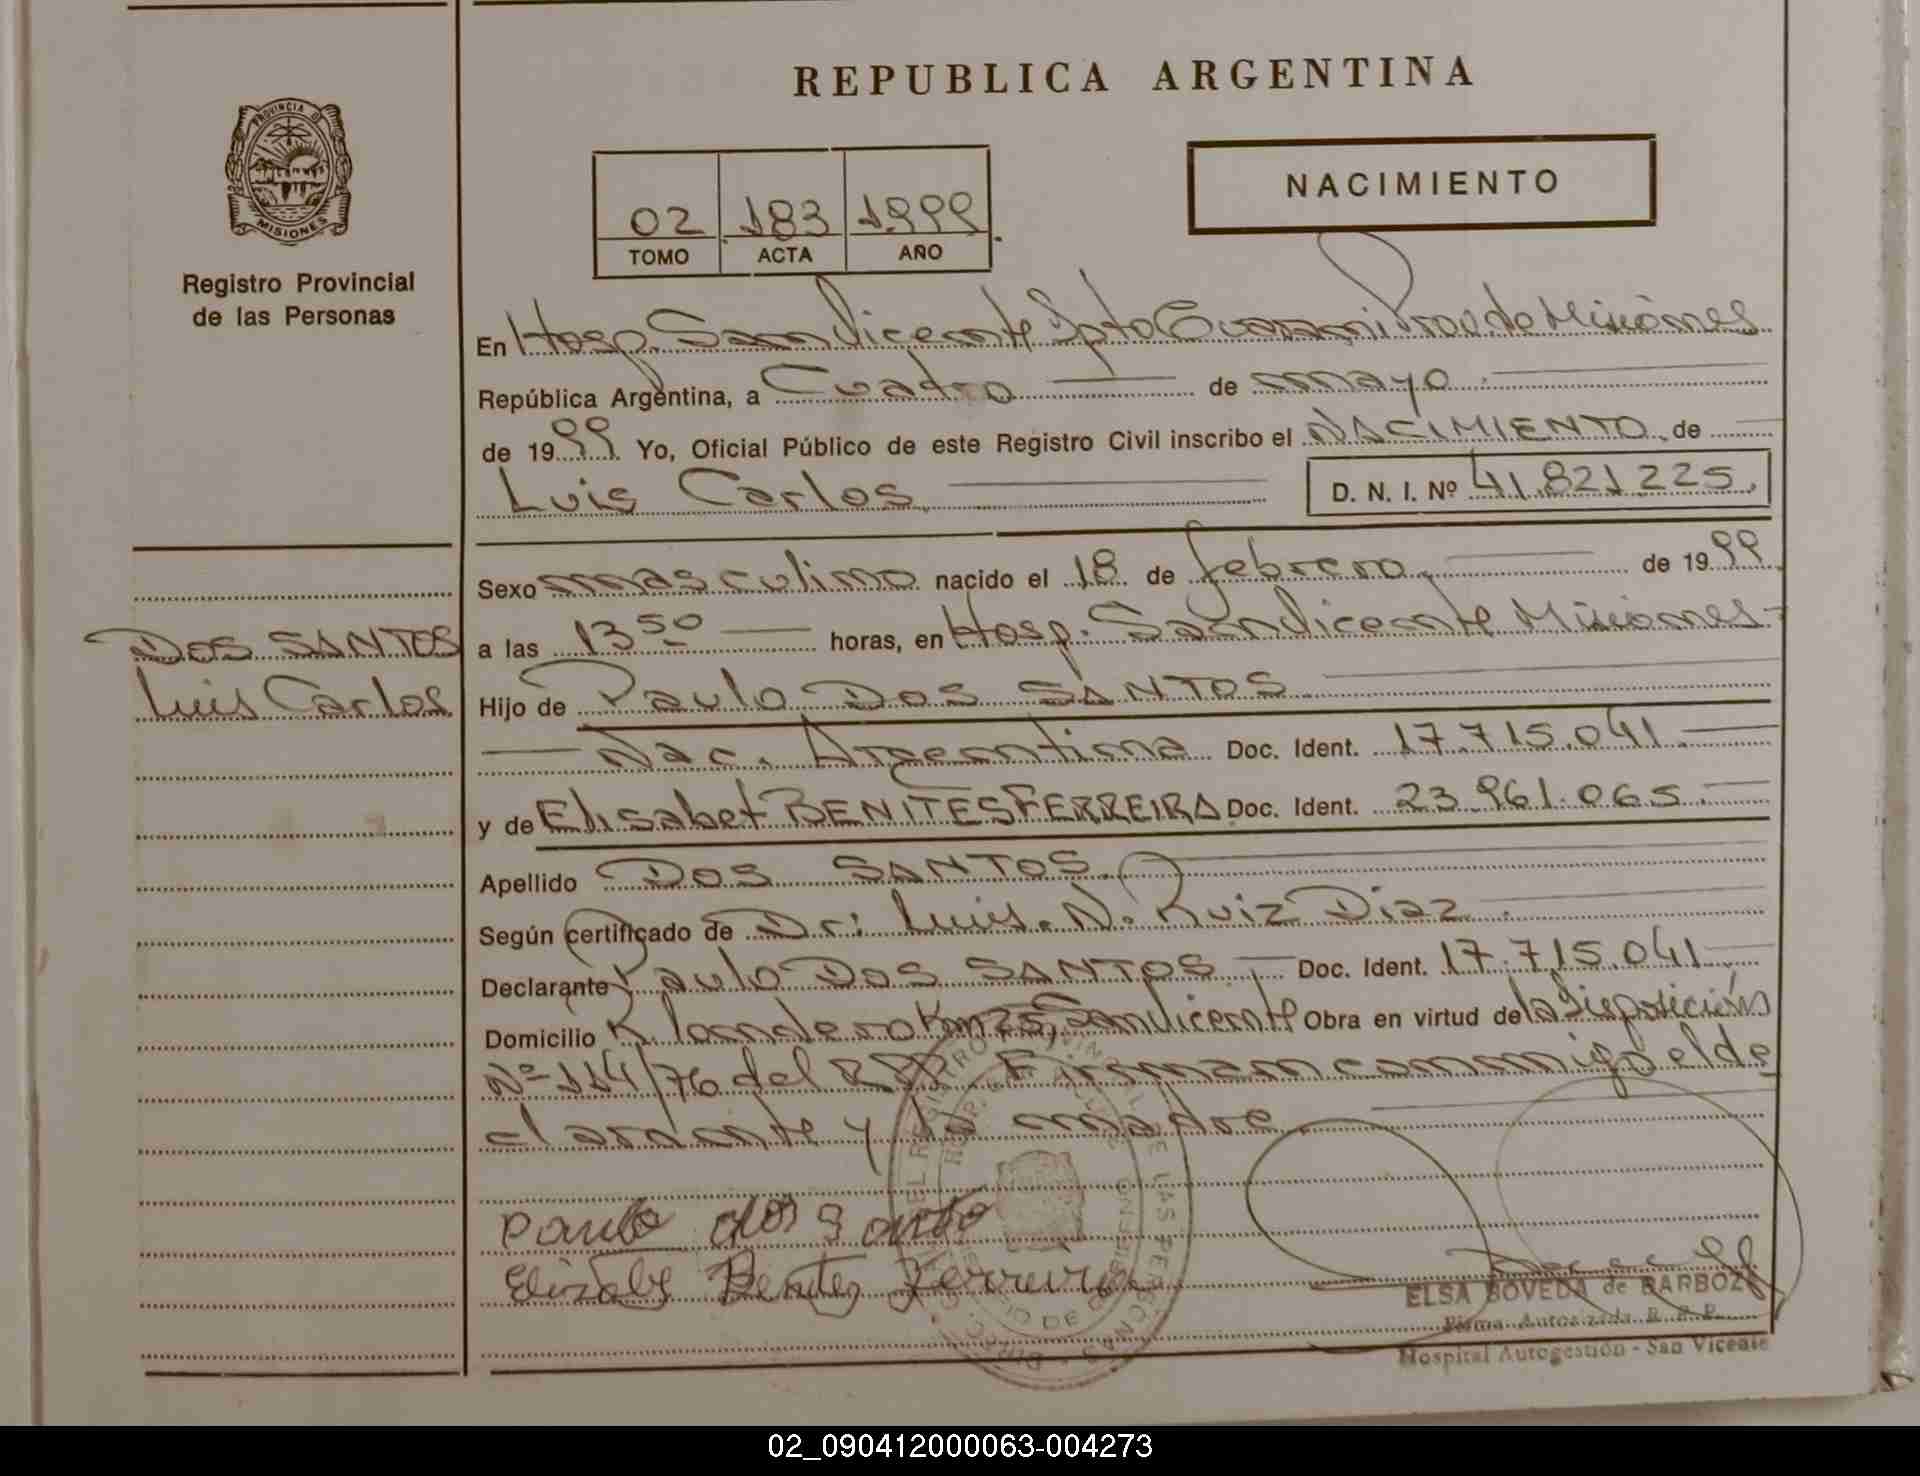 REPUBLICA ARGENTINA
PROVINCIA D
MISIONES
Registro Provincial
de las Personas
NACIMIENTO
02 183 1999
TOMO ACTA AÑO
En Hosp. San Vicente Dpto Guarani Prov. de Misiones
República Argentina, a Cuatro de mayo
de 1999 Yo, Oficial Público de este Registro Civil inscribo el NACIMIENTO de
Luis Carlos D. N. I. Nº 41.821.225.
Sexo masculino nacido el 18 de febrero de 1999
a las 13 50 horas, en Hosp. San Vicente Misiones-
DOS SANTOS
Luis Carlos
Hijo de Paulo DOS SANTOS
Nac. Argentina Doc. Ident. 17.715.041.
y de Elisabet BENITES FERREIRA Doc. Ident. 23.961.065.
Apellido DOS SANTOS.
Según certificado de Dr: Luis. N. Ruiz Diaz
Declarante Paulo DOS SANTOS Doc. Ident. 17.715.041
Domicilio P. Londero Km 25, San Vicente Obra en virtud de la Disposición
Nº 114/76 del RPP. Firman conmigo el de
clarante y la madre
Paulo dos Santo
Elizabe Benites Ferreira
ELSA BOVEDA de BARBOZA
Firma Autorizada R. P. P.
Hospital Autogestión - San Vicente
02_090412000063-004273